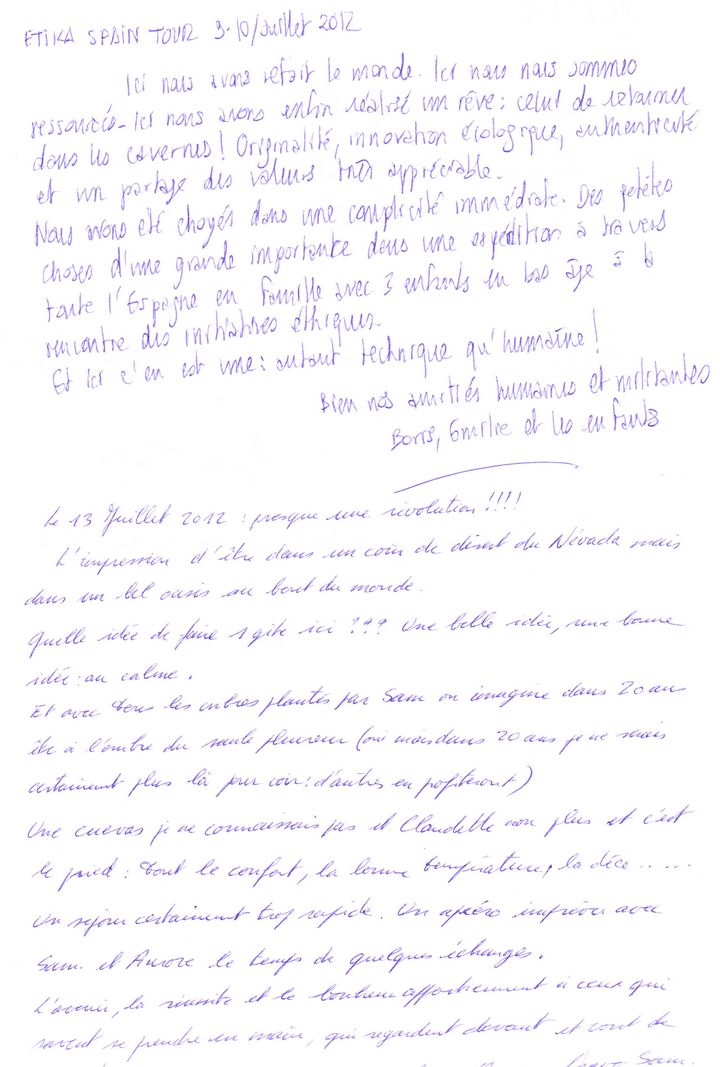 ETIKA SPAIN TOUR 3-10/Juillet 2012
Ici nous avons refait le monde. Ici nous nous sommes
ressourcés - Ici nous avons enfin réalisé un rêve : celui de retourner
dans les cavernes ! Originalité, innovation écologique, authenticité
et un partage des valeurs très appréciable.
Nous avons été choyés dans une complicité immédiate. Des petites
choses d'une grande importance dans une expédition à travers
toute l'Espagne en famille avec 3 enfants en bas âge à la
rencontre des initiatives éthiques.
Et ici c'en est une : autant technique qu'humaine !
Bien nos amitiés humaines et militantes
Boris, Emilie et les enfants
Le 13 Juillet 2012 : presque une révolution !!!!
L'impression d'être dans un coin de désert du Névada mais
dans un bel oasis au bout du monde.
Quelle idée de faire 1 gîte ici ??? Une belle idée, une bonne
idée : au calme.
Et avec tous les arbres plantés par Sam on imagine dans 20 ans
être à l'ombre du saule pleureur (oui mais dans 20 ans je ne serais
certainement plus là pour voir : d'autres en profiteront)
Une cuevas je ne connaissais pas et Claudette non plus et c'est
le pied : tout le confort, la bonne température, la déco .....
Un séjour certainement trop rapide. Un apéro imprévu avec
Sam. et Aurore le temps de quelques échanges.
L'avenir, la réussite et le bonheur appartiennent à ceux qui
savent se prendre en main, qui regardent devant et vont de
Sam.